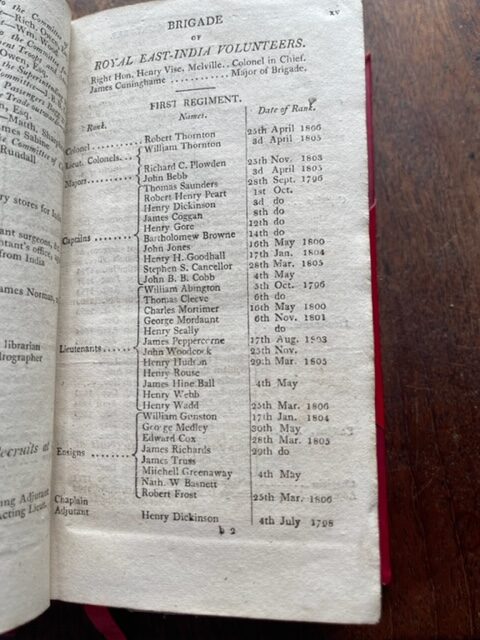 to the Committee
Rich. Owen
Wm. Wood
to the Committee for
Owen, Esq.
the Superintend
Committee
Passengers Bag
Trade outward
n, Esq.
Matth. Shaw
James Sabine
the Committee of
Rundall
ry stores for Ind
ant surgeons,
tant's office,
from India
ames Norman,
librarian
drographer
Recruits at
ng Adjutant
cting Lieut.
xv
BRIGADE
OF
ROYAL EAST-INDIA VOLUNTEERS.
Right Hon. Henry Visc. Melville.. Colonel in Chief.
James Cuninghame ............ Major of Brigade.
FIRST REGIMENT.
Rank. Names. Date of Rank.
Colonel .......... Robert Thornton 25th April 1806
Lieut. Colonels.. William Thornton 3d April 1805
Richard C. Plowden 25th Nov. 1803
Majors.......... John Bebb 3d April 1805
Thomas Saunders 28th Sept. 1796
Robert Henry Peart 1st Oct.
Henry Dickinson 3d do
James Coggan 8th do
Henry Gore 12th do
Captains ........ Bartholomew Browne 14th do
John Jones 16th May 1800
Henry H. Goodhall 17th Jan. 1804
Stephen S. Cancellor 28th Mar. 1805
John B. B. Cobb 4th May
William Abington 5th Oct. 1796
Thomas Cleeve 6th do
Charles Mortimer 16th May 1800
George Mordaunt 6th Nov. 1801
Henry Seally do
James Peppercorne 17th Aug. 1803
Lieutenants...... John Woodcock 25th Nov.
Henry Hudson 29th Mar. 1805
Henry Rouse
James Hine Ball 4th May
Henry Webb
Henry Wadd 25th Mar. 1806
William Gunston 17th Jan. 1804
George Medley 30th May
Edward Cox 28th Mar. 1805
Ensigns ........ James Richards 29th do
James Truss
Mitchell Greenaway 4th May
Nath. W Basnett
Robert Frost 25th Mar. 1806
Chaplain
Adjutant Henry Dickinson 4th July 1798
b 2